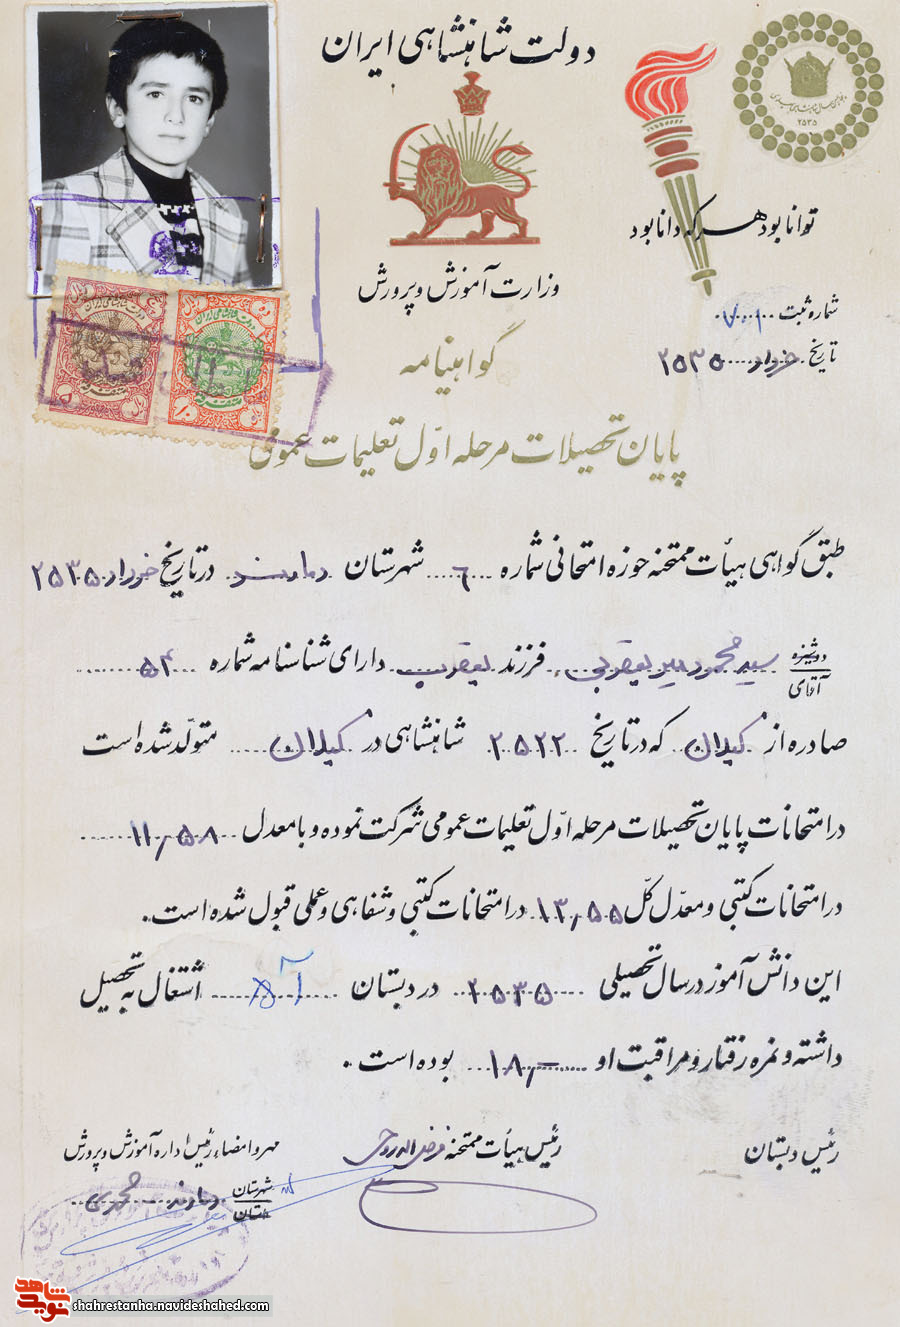 دولت شاهنشاهی ایران
۲۵۳۵
توانا بود هر که دانا بود
وزارت آموزش و پرورش
شماره ثبت ۷۰۱
تاریخ خرداد ۲۵۳۵
گواهینامه
پایان تحصیلات مرحله اوّل تعلیمات عمومی
طبق گواهی هیأت ممتحنه حوزه امتحانی شماره ۶ شهرستان دماوند در تاریخ خرداد ۲۵۳۵
دوشیزه
آقای سید محمود میر یعقوبی فرزند یعقوب دارای شناسنامه شماره ۵۴
صادره از کیلان که در تاریخ ۲۵۲۲ شاهنشاهی در کیلان متولّد شده است
در امتحانات پایان تحصیلات مرحله اوّل تعلیمات عمومی شرکت نموده و با معدل ۱۱٫۵۸
در امتحانات کتبی و معدّل کلّ ۱۳٫۵۵ در امتحانات کتبی و شفاهی و عملی قبول شده است.
این دانش آموز در سال تحصیلی ۲۵۳۵ در دبستان اشتغال به تحصیل
داشته و نمره رفتار و مراقبت او ۱۸٫- بوده است.
رئیس دبستان
رئیس هیأت ممتحنه
مهر و امضاء رئیس اداره آموزش و پرورش
شهرستان
استان
دماوند
نوید شاهد
shahrestanha.navideshahed.com